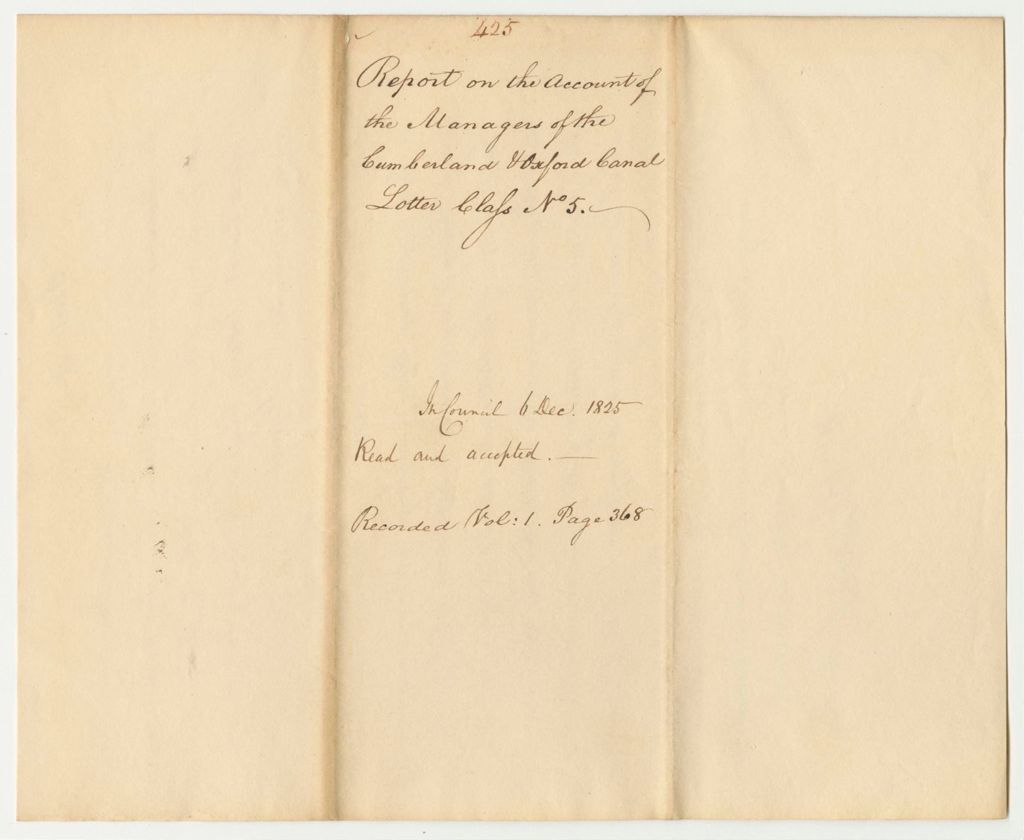 425
Report on the Account of
the Managers of the
Cumberland & Oxford Canal
Lotter Class No 5.
In Council 6 Dec. 1825
Read and accepted. —
Recorded Vol: 1. Page 368